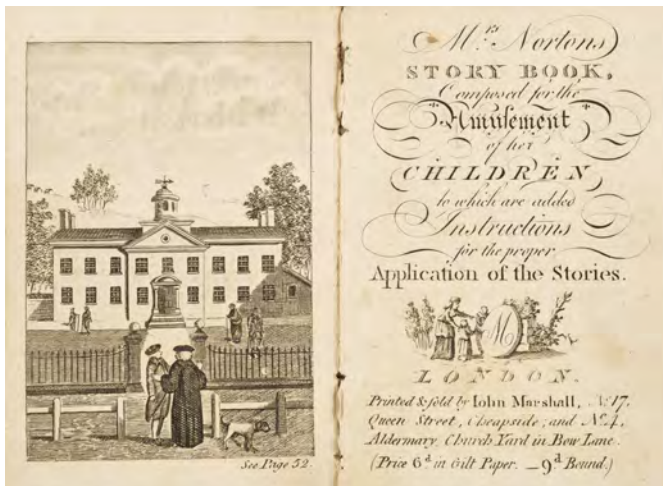 See Page 52.
Mrs. Nortons
STORY BOOK,
Composed for the
Amusement
of her
CHILDREN
to which are added
Instructions
for the proper
Application of the Stories.
M
LONDON.
Printed & sold by Iohn Marshall, No. 17,
Queen Street, Cheapside; and No. 4,
Aldermary Church Yard in Bow Lane.
(Price 6d in Gilt Paper. — 9d Bound.)